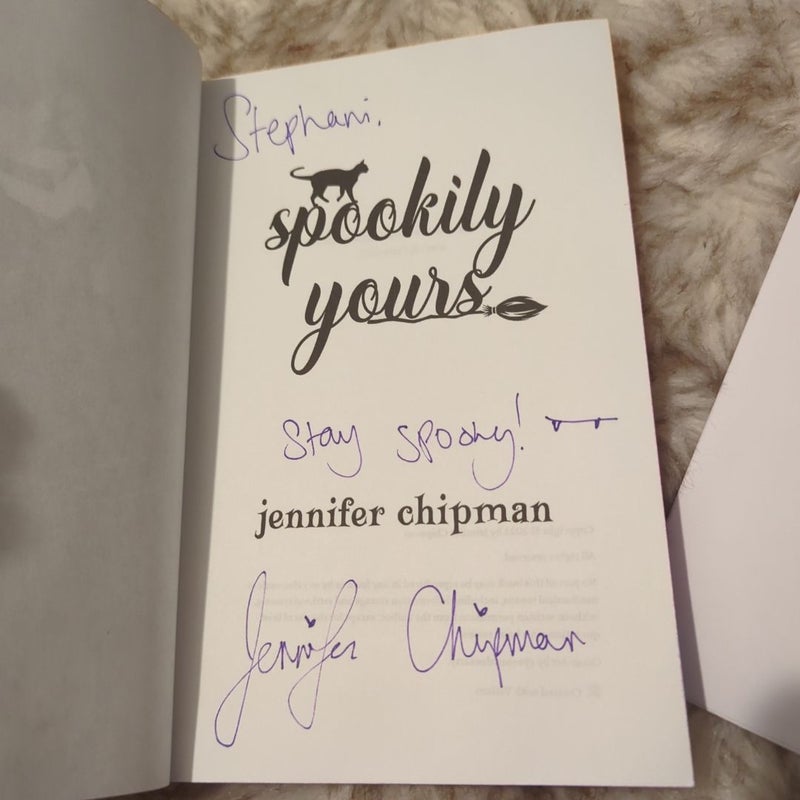 Stephani.
spookily
yours
Stay spooky!
jennifer chipman
Jennifer Chipman